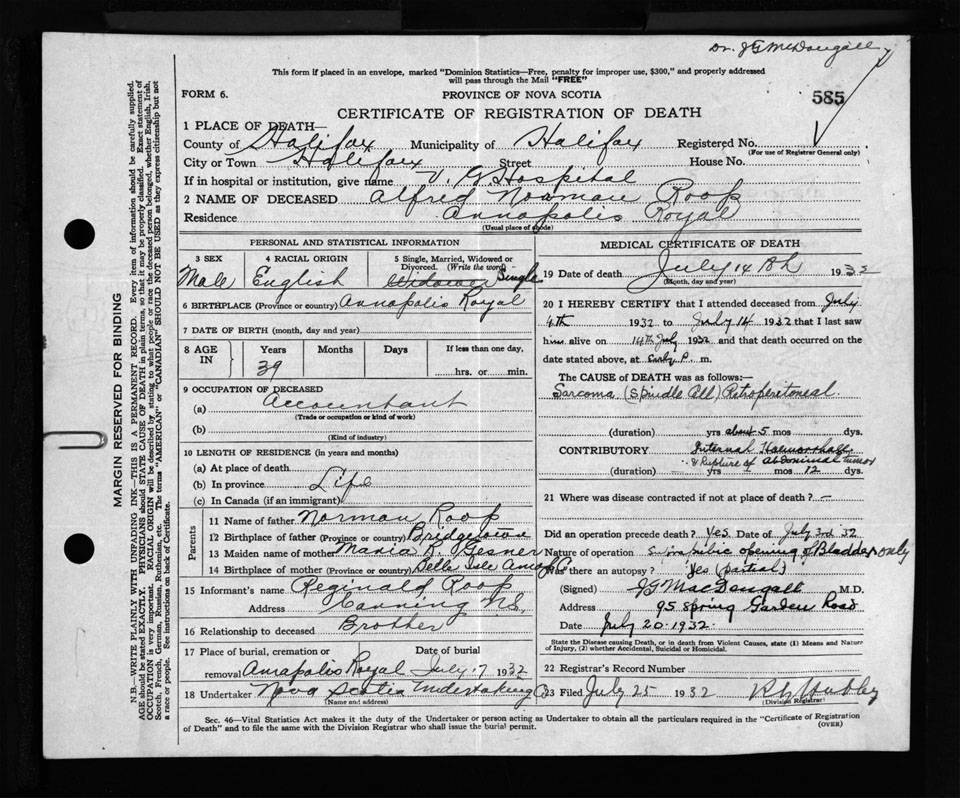 Dr. J G McDougall
This form if placed in an envelope, marked "Dominion Statistics—Free, penalty for improper use, $300," and properly addressed
will pass through the Mail "FREE"
FORM 6.
PROVINCE OF NOVA SCOTIA
585
CERTIFICATE OF REGISTRATION OF DEATH
1 PLACE OF DEATH—
County of Halifax Municipality of Halifax Registered No.
(For use of Registrar General only)
City or Town Halifax Street House No.
If in hospital or institution, give name V. G Hospital
2 NAME OF DECEASED Alfred Norman Roop
Residence Annapolis Royal
(Usual place of abode)
PERSONAL AND STATISTICAL INFORMATION
3 SEX 4 RACIAL ORIGIN 5 Single, Married, Widowed or
Divorced. (Write the word)
Male English Widower Single
6 BIRTHPLACE (Province or country) Annapolis Royal
7 DATE OF BIRTH (month, day and year)
8 AGE IN Years Months Days If less than one day,
39 hrs. or min.
9 OCCUPATION OF DECEASED
(a) Accountant
(Trade or occupation or kind of work)
(b)
(Kind of industry)
10 LENGTH OF RESIDENCE (in years and months)
(a) At place of death
(b) In province Life
(c) In Canada (if an immigrant)
Parents
11 Name of father Norman Roop
12 Birthplace of father (Province or country) Bridgetown
13 Maiden name of mother Maria R. Gesner
14 Birthplace of mother (Province or country) Belle Isle
15 Informant's name Reginald Roop
Address Canning N.S.
16 Relationship to deceased Brother
17 Place of burial, cremation or Date of burial
removal Annapolis Royal July 17 1932
18 Undertaker Nova Scotia Undertaking Co
(Name and address)
MEDICAL CERTIFICATE OF DEATH
19 Date of death July 14th 1932
(Month, day and year)
20 I HEREBY CERTIFY that I attended deceased from July
4th 1932 to July 14 1932 that I last saw
him alive on 14th July 1932 and that death occurred on the
date stated above, at Early P. m.
The CAUSE OF DEATH was as follows:—
Sarcoma (Spindle Cell) Retroperetoneal.
(duration) yrs about 5 mos dys.
CONTRIBUTORY Internal Haemorrhage
& Rupture of abdominal tumor
(duration) yrs mos 12 dys.
21 Where was disease contracted if not at place of death? —
Did an operation precede death? Yes. Date of July 3rd 32
Nature of operation Suprapubic opening of Bladder only
Was there an autopsy? Yes (partial)
(Signed) JG MacDougall M.D.
Address 95 Spring Garden Road
Date July 20-1932.
State the Disease causing Death, or in death from Violent Causes, state (1) Means and Nature
of Injury, (2) whether Accidental, Suicidal or Homicidal.
22 Registrar's Record Number
23 Filed July 25 1932
(Division Registrar)
Sec. 46—Vital Statistics Act makes it the duty of the Undertaker or person acting as Undertaker to obtain all the particulars required in the "Certificate of Registration
of Death" and to file the same with the Division Registrar who shall issue the burial permit.
(OVER)
MARGIN RESERVED FOR BINDING
N.B.—WRITE PLAINLY WITH UNFADING INK—THIS IS A PERMANENT RECORD. Every item of information should be carefully supplied.
AGE should be stated EXACTLY. PHYSICIANS should STATE CAUSE OF DEATH in plain terms, so that it may be properly classified. Exact statement of
OCCUPATION is very important. RACIAL ORIGIN will be described by stating to what people or race the deceased person belonged, whether English, Irish,
Scotch, French, German, Russian, Ruthenian, etc. The terms "AMERICAN" or "CANADIAN" SHOULD NOT BE USED as they express citizenship but not
a race or people. See instructions on back of Certificate.